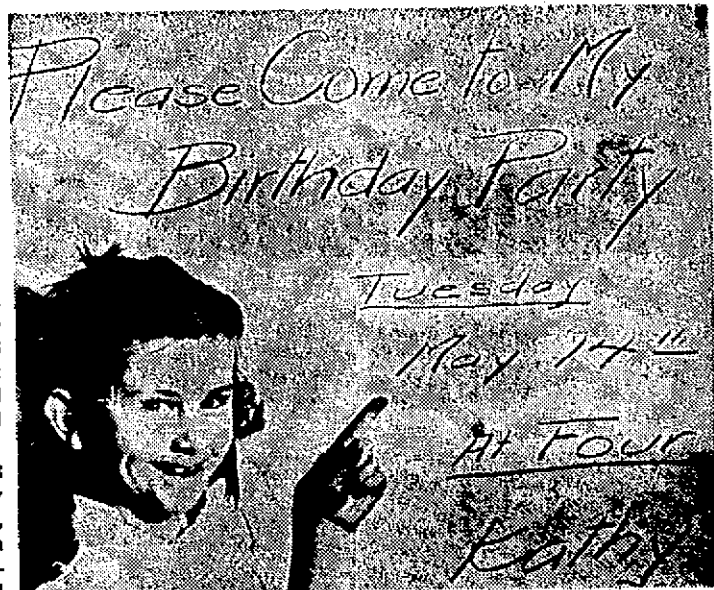 Please Come to My
Birthday Party
Tuesday
May 14th
At Four
Kathy